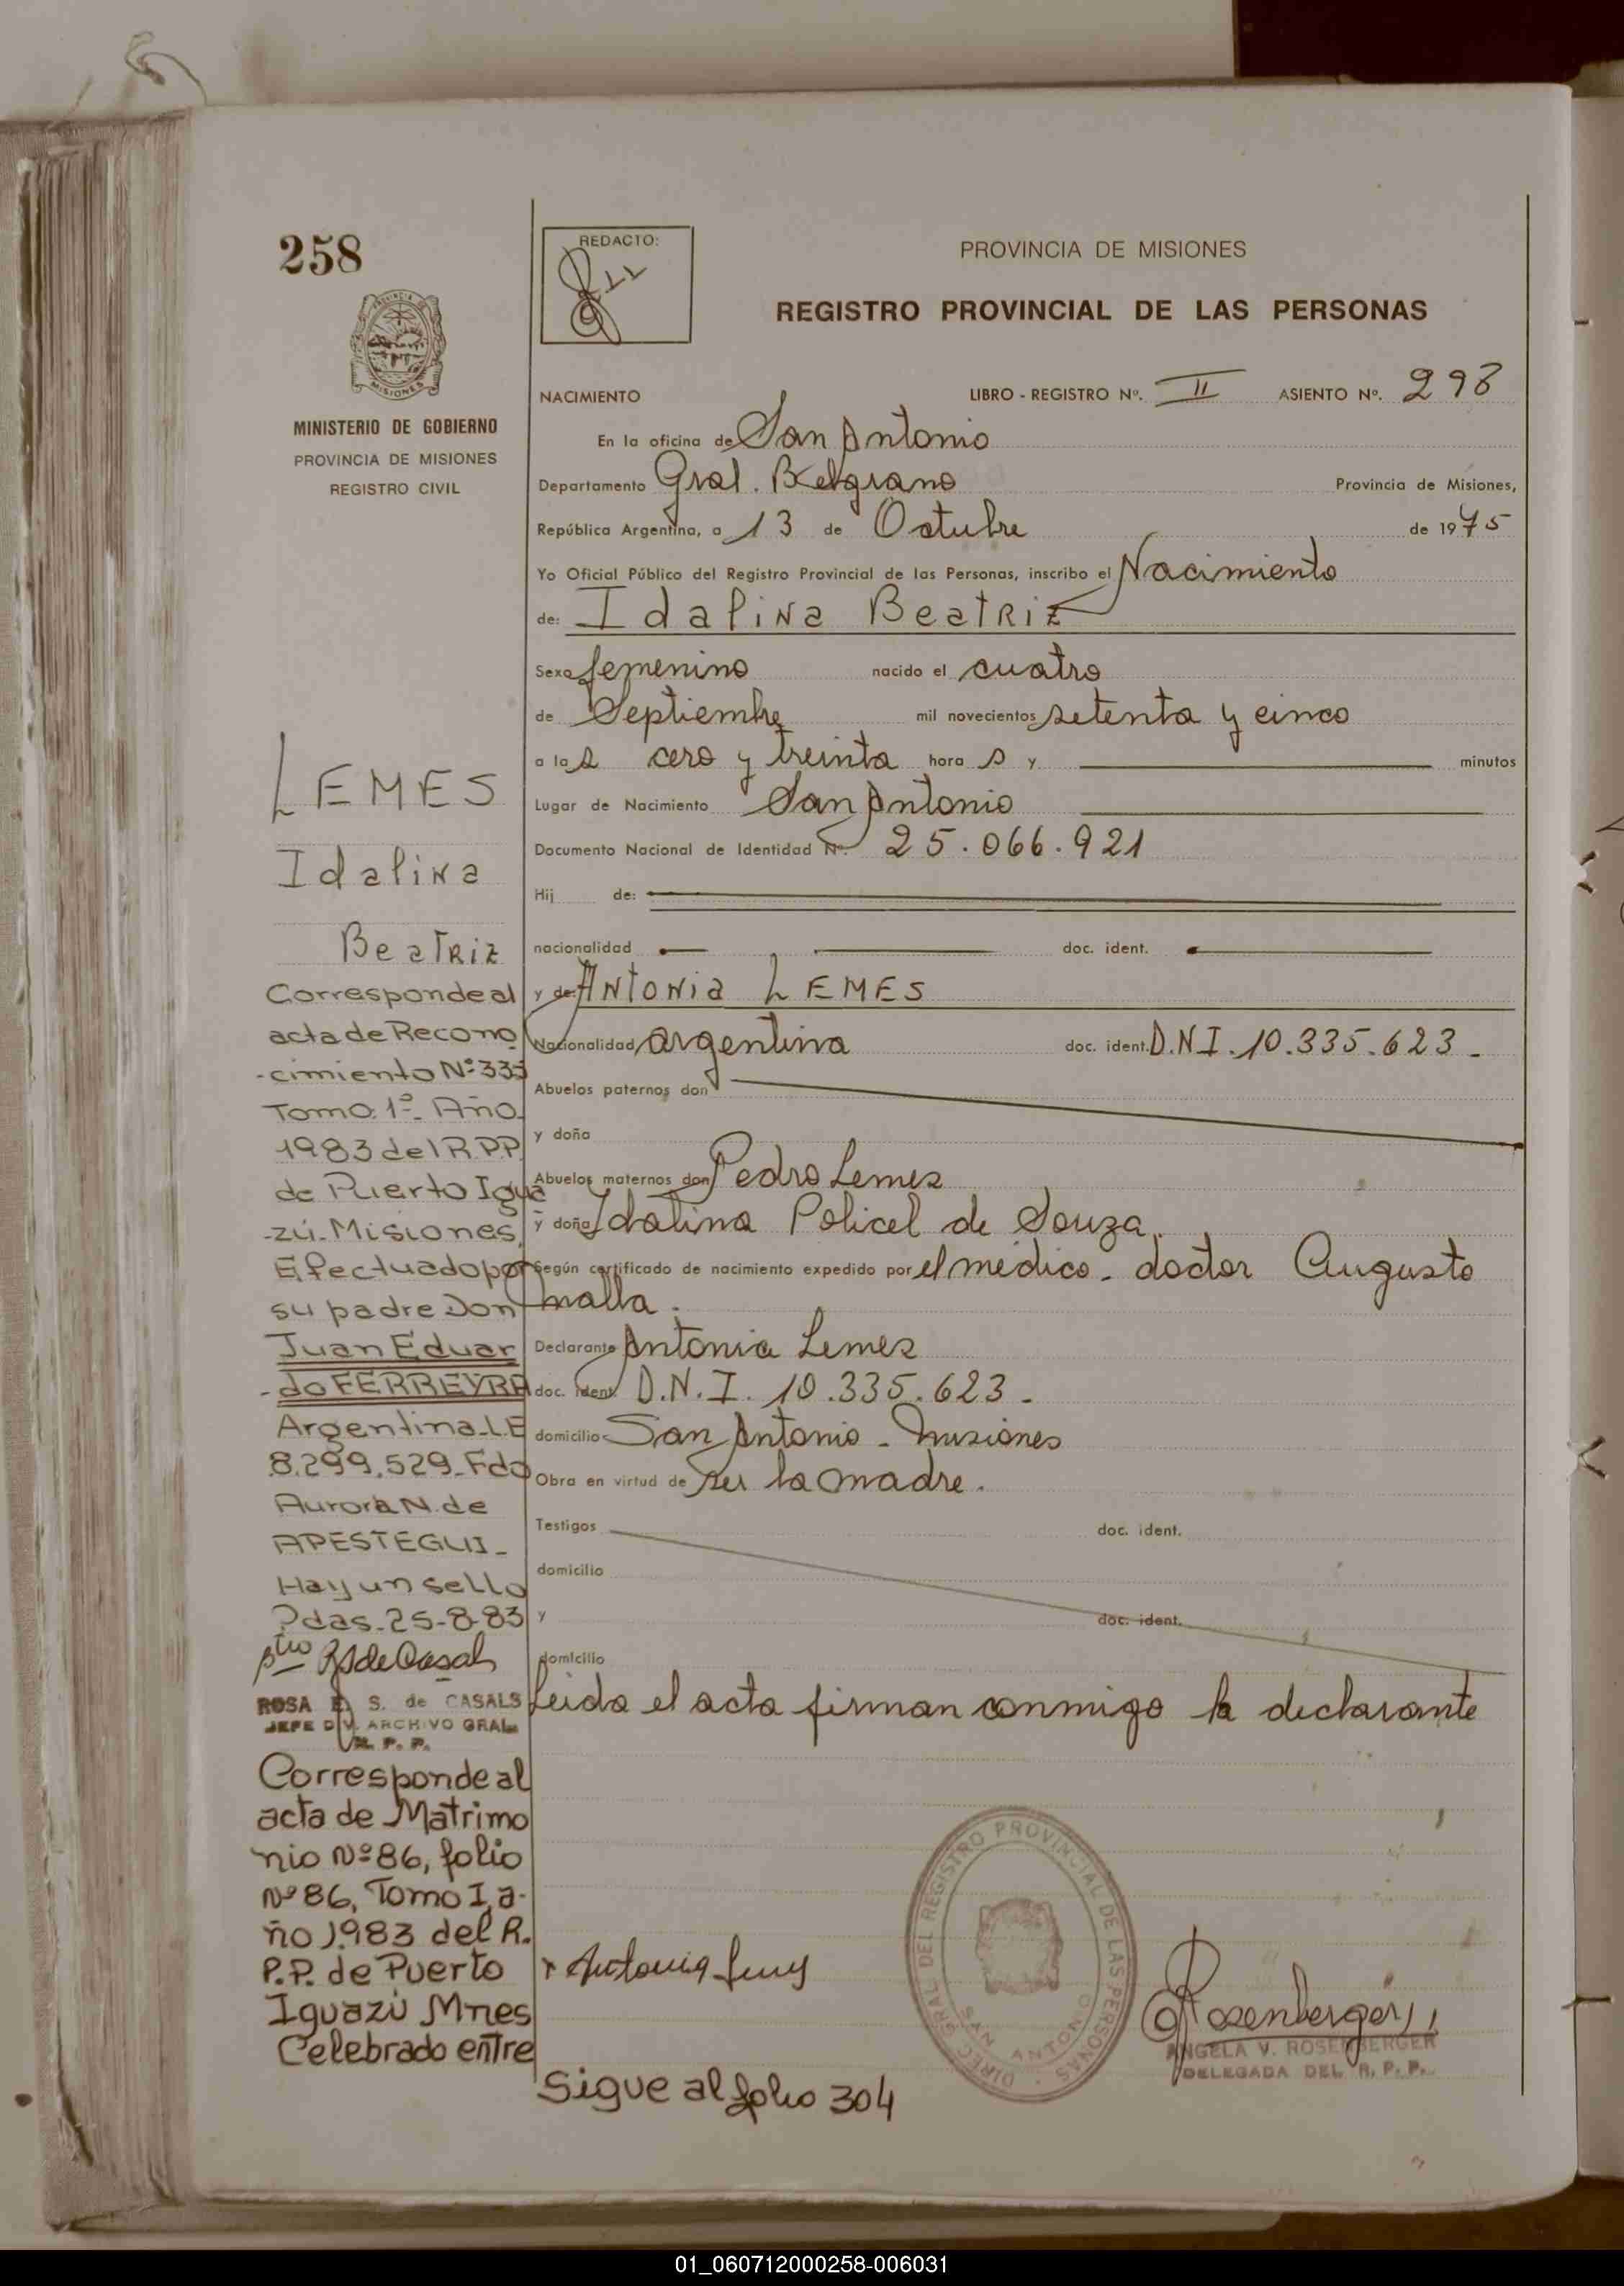 258
MINISTERIO DE GOBIERNO
PROVINCIA DE MISIONES
REGISTRO CIVIL
REDACTO:
PROVINCIA DE MISIONES
REGISTRO PROVINCIAL DE LAS PERSONAS
NACIMIENTO LIBRO - REGISTRO Nº. II ASIENTO Nº. 298
En la oficina de San Antonio
Departamento Gral. Belgrano Provincia de Misiones,
República Argentina, a 13 de Octubre de 1975
Yo Oficial Público del Registro Provincial de las Personas, inscribo el Nacimiento
de: Idalina Beatriz
Sexo femenino nacido el cuatro
de Septiembre mil novecientos setenta y cinco
a las cero y treinta horas y minutos
Lugar de Nacimiento San Antonio
Documento Nacional de Identidad Nº. 25.066.921
Hij de:
nacionalidad doc. ident.
y de: Antonia LEMES
Nacionalidad argentina doc. ident. D.N.I. 10.335.623.-
Abuelos paternos don
y doña
Abuelos maternos don Pedro Lemes
y doña Idalina Policel de Souza.
Según certificado de nacimiento expedido por el médico - doctor Augusto
Malla.
Declarante Antonia Lemes
doc. ident. D.N.I. 10.335.623.-
domicilio San Antonio - Misiones
Obra en virtud de ser la madre.
Testigos doc. ident.
domicilio
y doc. ident.
domicilio
Leida el acta firman conmigo la declarante
LEMES
Idalina
Beatriz
Corresponde al
acta de Recono
-cimiento Nº 333
Tomo 1º- Año
1983 del R.P.P.
de Puerto Igua
-zú-Misiones,
Efectuado por
su padre Don
Juan Eduar
-do FERREYRA
Argentina-L.E
8.299.529-Fdo
Aurora N. de
APESTEGUI-
Hay un sello
Pdas-25-8-83
ROSA E. S. de CASALS
JEFE DIV. ARCHIVO GRAL.
R. P. P.
Corresponde al
acta de Matrimo
nio Nº 86, folio
Nº 86, Tomo I, a-
ño 1.983 del R.
P.P. de Puerto
Iguazú Mnes
Celebrado entre
Sigue al folio 304
DIREC. GRAL DEL REGISTRO PROVINCIAL DE LAS PERSONAS
SAN ANTONIO
Rosenberger
ANGELA V. ROSENBERGER
DELEGADA DEL R. P. P.
01_060712000258-006031